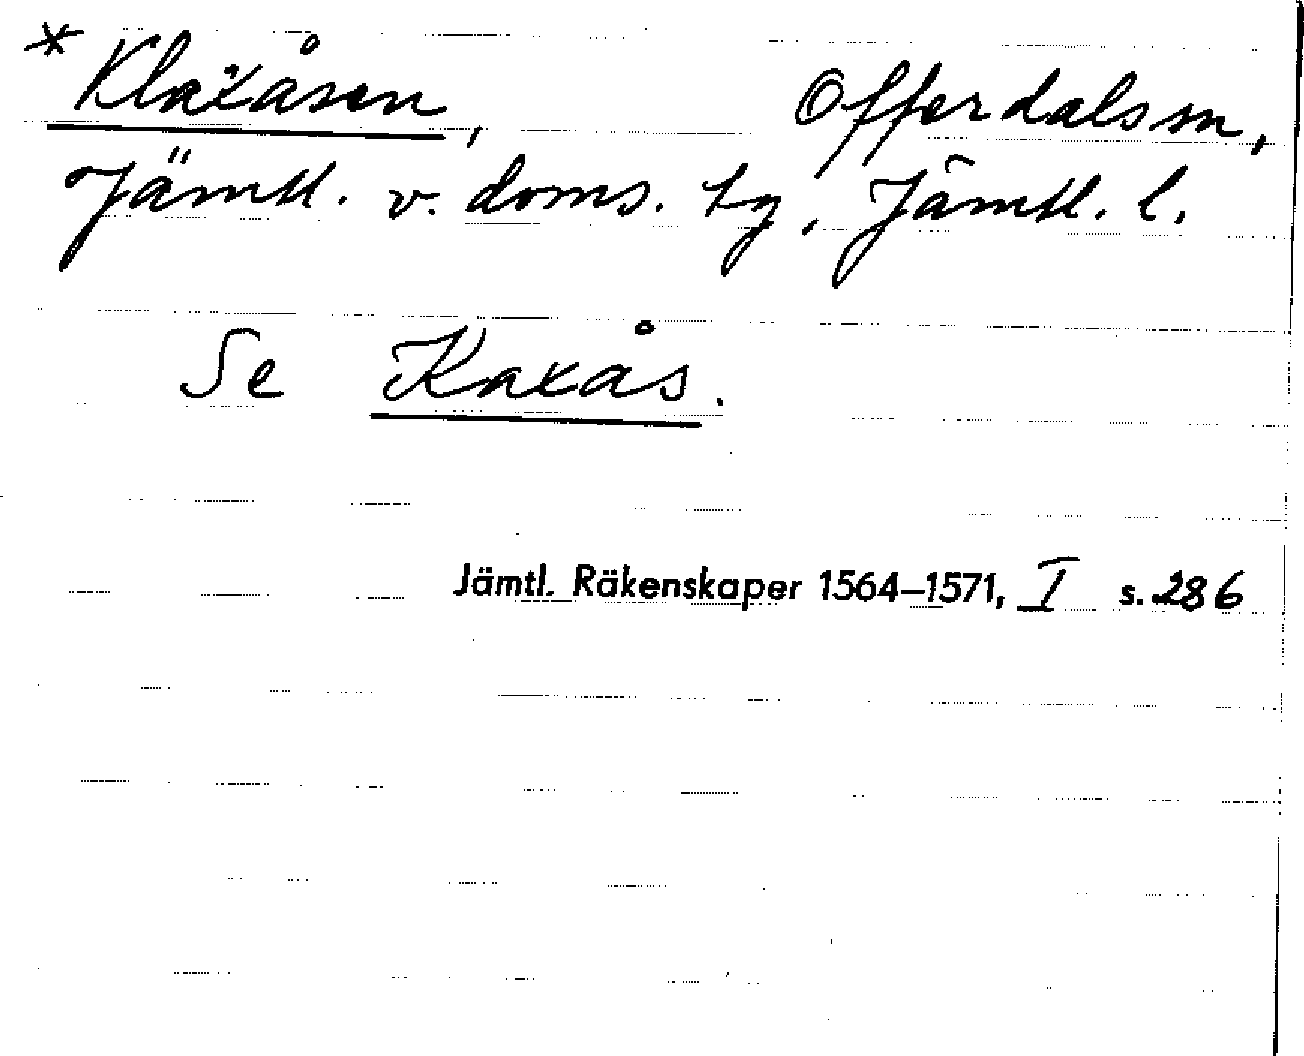 * Klaxåsen, Offerdals sn,
Jämtl. v. doms. tg, Jämtl. l.
Se Kaxås.
Jämtl. Räkenskaper 1564–1571, I s. 286